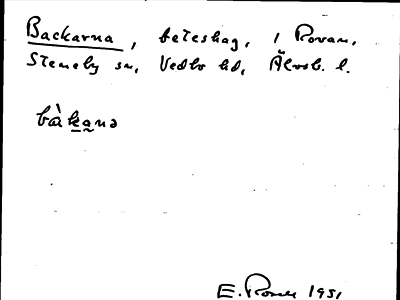 Backarna, beteshag, i Rovan,
Steneby sn, Vedbo hd, Älvsb. l.
bàkanə
E. 1951